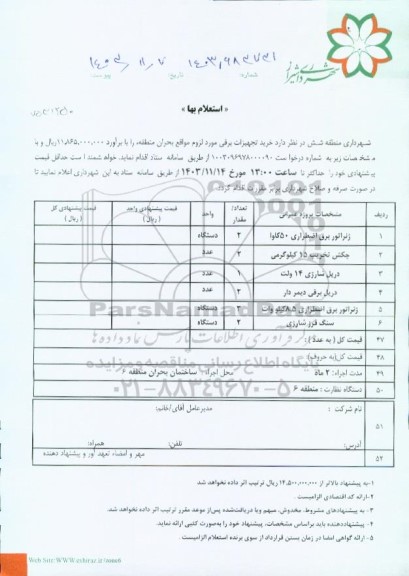 شهرداری شیراز
شماره: ۱۴۰۳/۹۸۳۷۳۱
تاریخ: ۱۴۰۳/۱۱/۷
پیوست
« استعلام بها »
شهرداری منطقه شش در نظر دارد خرید تجهیزات برقی مورد لزوم مواقع بحران منطقه، را با برآورد ۱۱,۸۶۵,۰۰۰,۰۰۰ریال و با
مشخصات زیر به شماره درخواست ۱۰۰۳۰۹۶۹۷۸۰۰۰۰۹۰ از طریق سامانه ستاد اقدام نماید. خواهشمند است حداقل قیمت
پیشنهادی خود را حداکثر تا ساعت ۱۳:۰۰ مورخ ۱۴۰۳/۱۱/۱۴ از طریق سامانه ستاد به این شهرداری اعلام نمایید تا
در صورت صرفه و صلاح شهرداری برابر مقررات عقد قرارداد گردد.
ردیف مشخصات پروژه عمرانی تعداد/ مقدار واحد قیمت پیشنهادی واحد ( ریال ) قیمت پیشنهادی کل ( ریال )
۱ ژنراتور برق اضطراری ۵۰کاوا ۲ دستگاه
۲ چکش تخریب ۱۵ کیلوگرمی ۲ عدد
۳ دریل شارژی ۱۴ ولت ۱ عدد
۴ دریل برقی دیمر دار ۲ عدد
۵ ژنراتور برق اضطراری ۸.۵کیلو وات ۳ دستگاه
۶ سنگ فرز شارژی ۲ دستگاه
۴۷ قیمت کل ( به عدد ):
۴۸ قیمت کل(به حروف):
۴۹ مدت اجراء: ۲ ماه محل اجراء: ساختمان بحران منطقه ۶
۵۰ دستگاه نظارت : منطقه ۶
۵۱ نام شرکت : مدیرعامل آقای/خانم:
آدرس: تلفن: همراه:
۵۲ مهر و امضاء تعهد آور و پیشنهاد دهنده
۱-به پیشنهاد بالاتر از ۱۴,۵۰۰,۰۰۰,۰۰۰ ریال ترتیب اثر داده نخواهد شد.
۲-ارائه کد اقتصادی الزامیست.
۳- به پیشنهادهای مشروط، مخدوش، مبهم ویا دریافت‌شده پس‌از موعد مقرر ترتیب اثر داده نخواهد شد.
۴- پیشنهاددهنده باید براساس مشخصات، پیشنهاد خود را به‌صورت کتبی ارائه نماید.
۵- ارائه گواهی امضا در زمان بستن قرارداد از سوی برنده استعلام الزامیست.
ParsNamadData
پایگاه اطلاع رسانی مناقصه و مزایده
۰۲۱-۸۸۳۴۹۶۷۰-۵